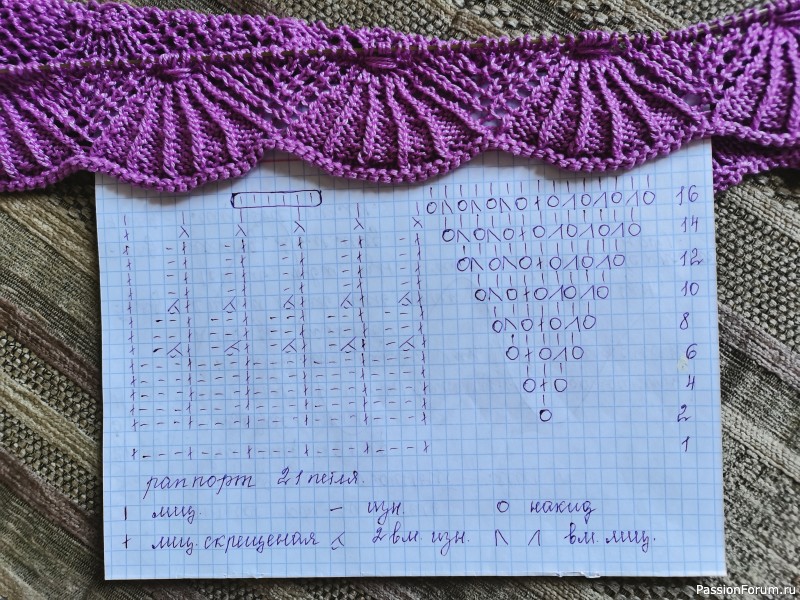 16
14
12
10
8
6
4
2
1
раппорт 21 петля.
| лиц. - изн. о накид
+ лиц. скрещеная ⅄ 2 вм. изн. /\ /\ вм. лиц.
PassionForum.ru